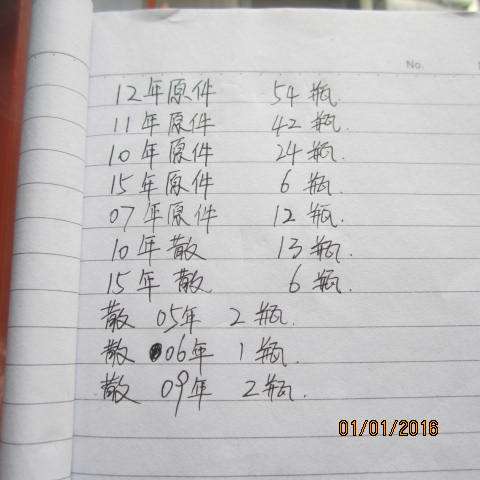 No.
12年原件 54瓶.
11年原件 42瓶.
10年原件 24瓶.
15年原件 6瓶.
07年原件 12瓶.
10年散 13瓶.
15年散 6瓶.
散 05年 2瓶.
散 06年 1瓶.
散 09年 2瓶.
01/01/2016